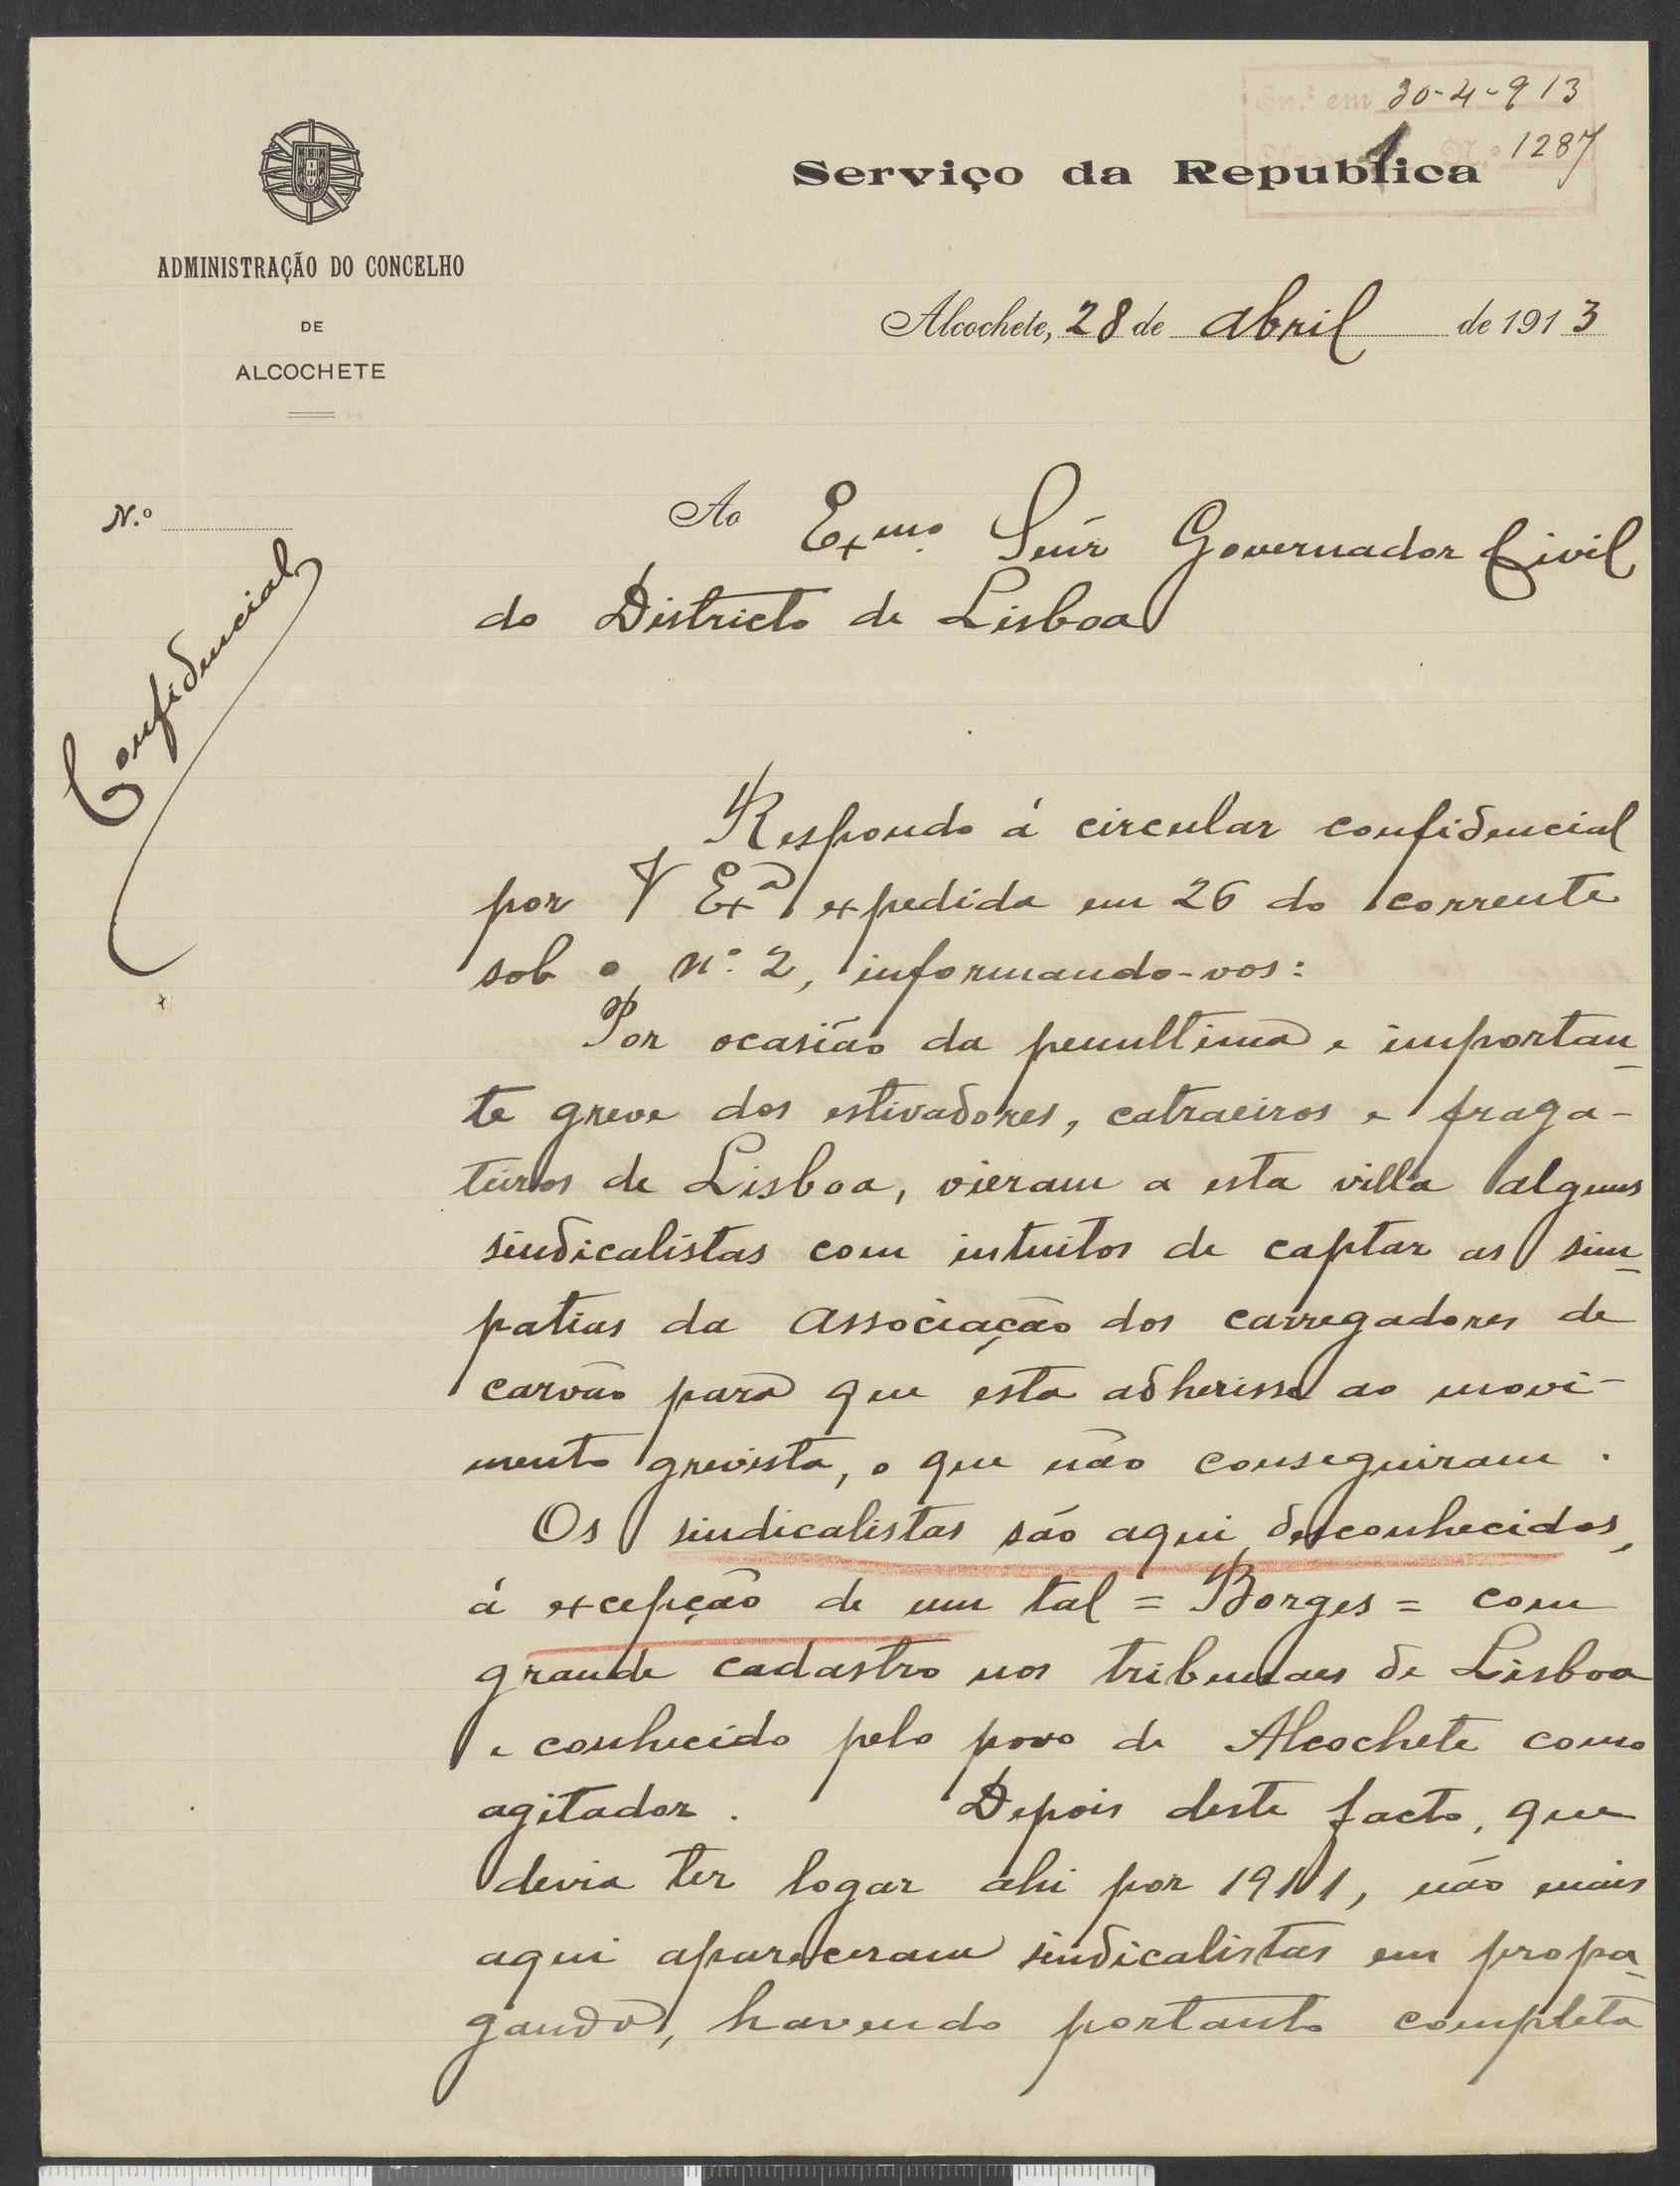 Ent.º em 30-4-913
1 N.º 1287
Serviço da Republica
ADMINISTRAÇÃO DO CONCELHO
DE
ALCOCHETE
Alcochete, 28 de abril de 1913
N.º
Confidencial
Ao Exmo. Senr Governador Civil
do Districto de Lisboa
Respondo á circular confidencial
por V Exª expedida em 26 do corrente
sob o nº. 2, informando-vos:
Por ocasião da penultima e importan-
te greve dos estivadores, catraeiros e fraga-
teiros de Lisboa, vieram a esta villa alguns
sindicalistas com intuitos de captar as sim-
patias da Associação dos carregadores de
carvão para que esta adherisse ao movi-
mento grevista, o que não conseguiram.
Os sindicalistas são aqui desconhecidos,
á excepção de um tal = Borges = com
grande cadastro nos tribunaes de Lisboa
e conhecido pelo povo de Alcochete como
agitador. Depois deste facto, que
devia ter logar ahi por 1911, não mais
aqui apareceram sindicalistas em propa-
ganda, havendo portanto completa